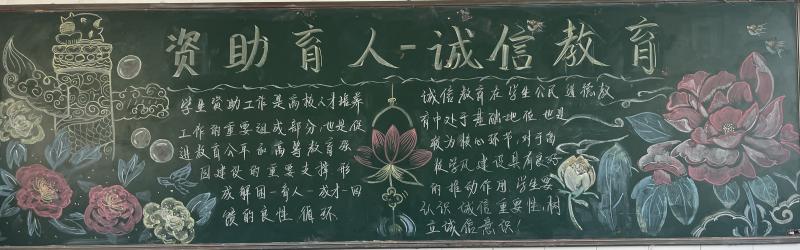 资助育人-诚信教育
学生资助工作是高校人才培养
工作的重要组成部分,也是促
进教育公平和高等教育强
国建设的重要支撑,形
成解困-育人-成才-回
馈的良性循环
诚信教育在学生公民道德教
育中处于基础地位,也是
最为核心环节,对于高
校学风建设具有良好
的推动作用.学生要
认识诚信重要性,树
立诚信意识!